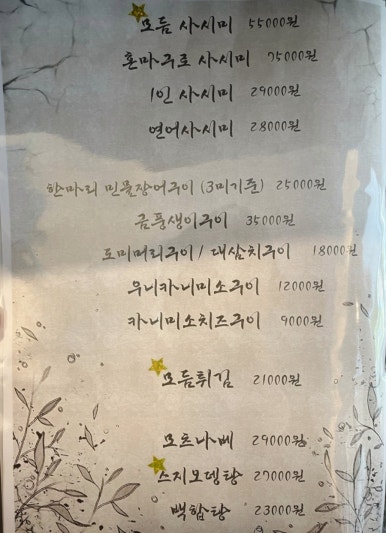 모듬 사시미 55000원
혼마구로 사시미 75000원
1인 사시미 29000원
연어사시미 28000원
한마리 민물장어구이 (3미기준) 25000원
금풍생이구이 35000원
도미머리구이 / 대삼치구이 18000원
우니카니미소구이 12000원
카니미소치즈구이 9000원
모듬튀김 21000원
모츠나베 29000원
스지모뎅탕 27000원
백합탕 23000원